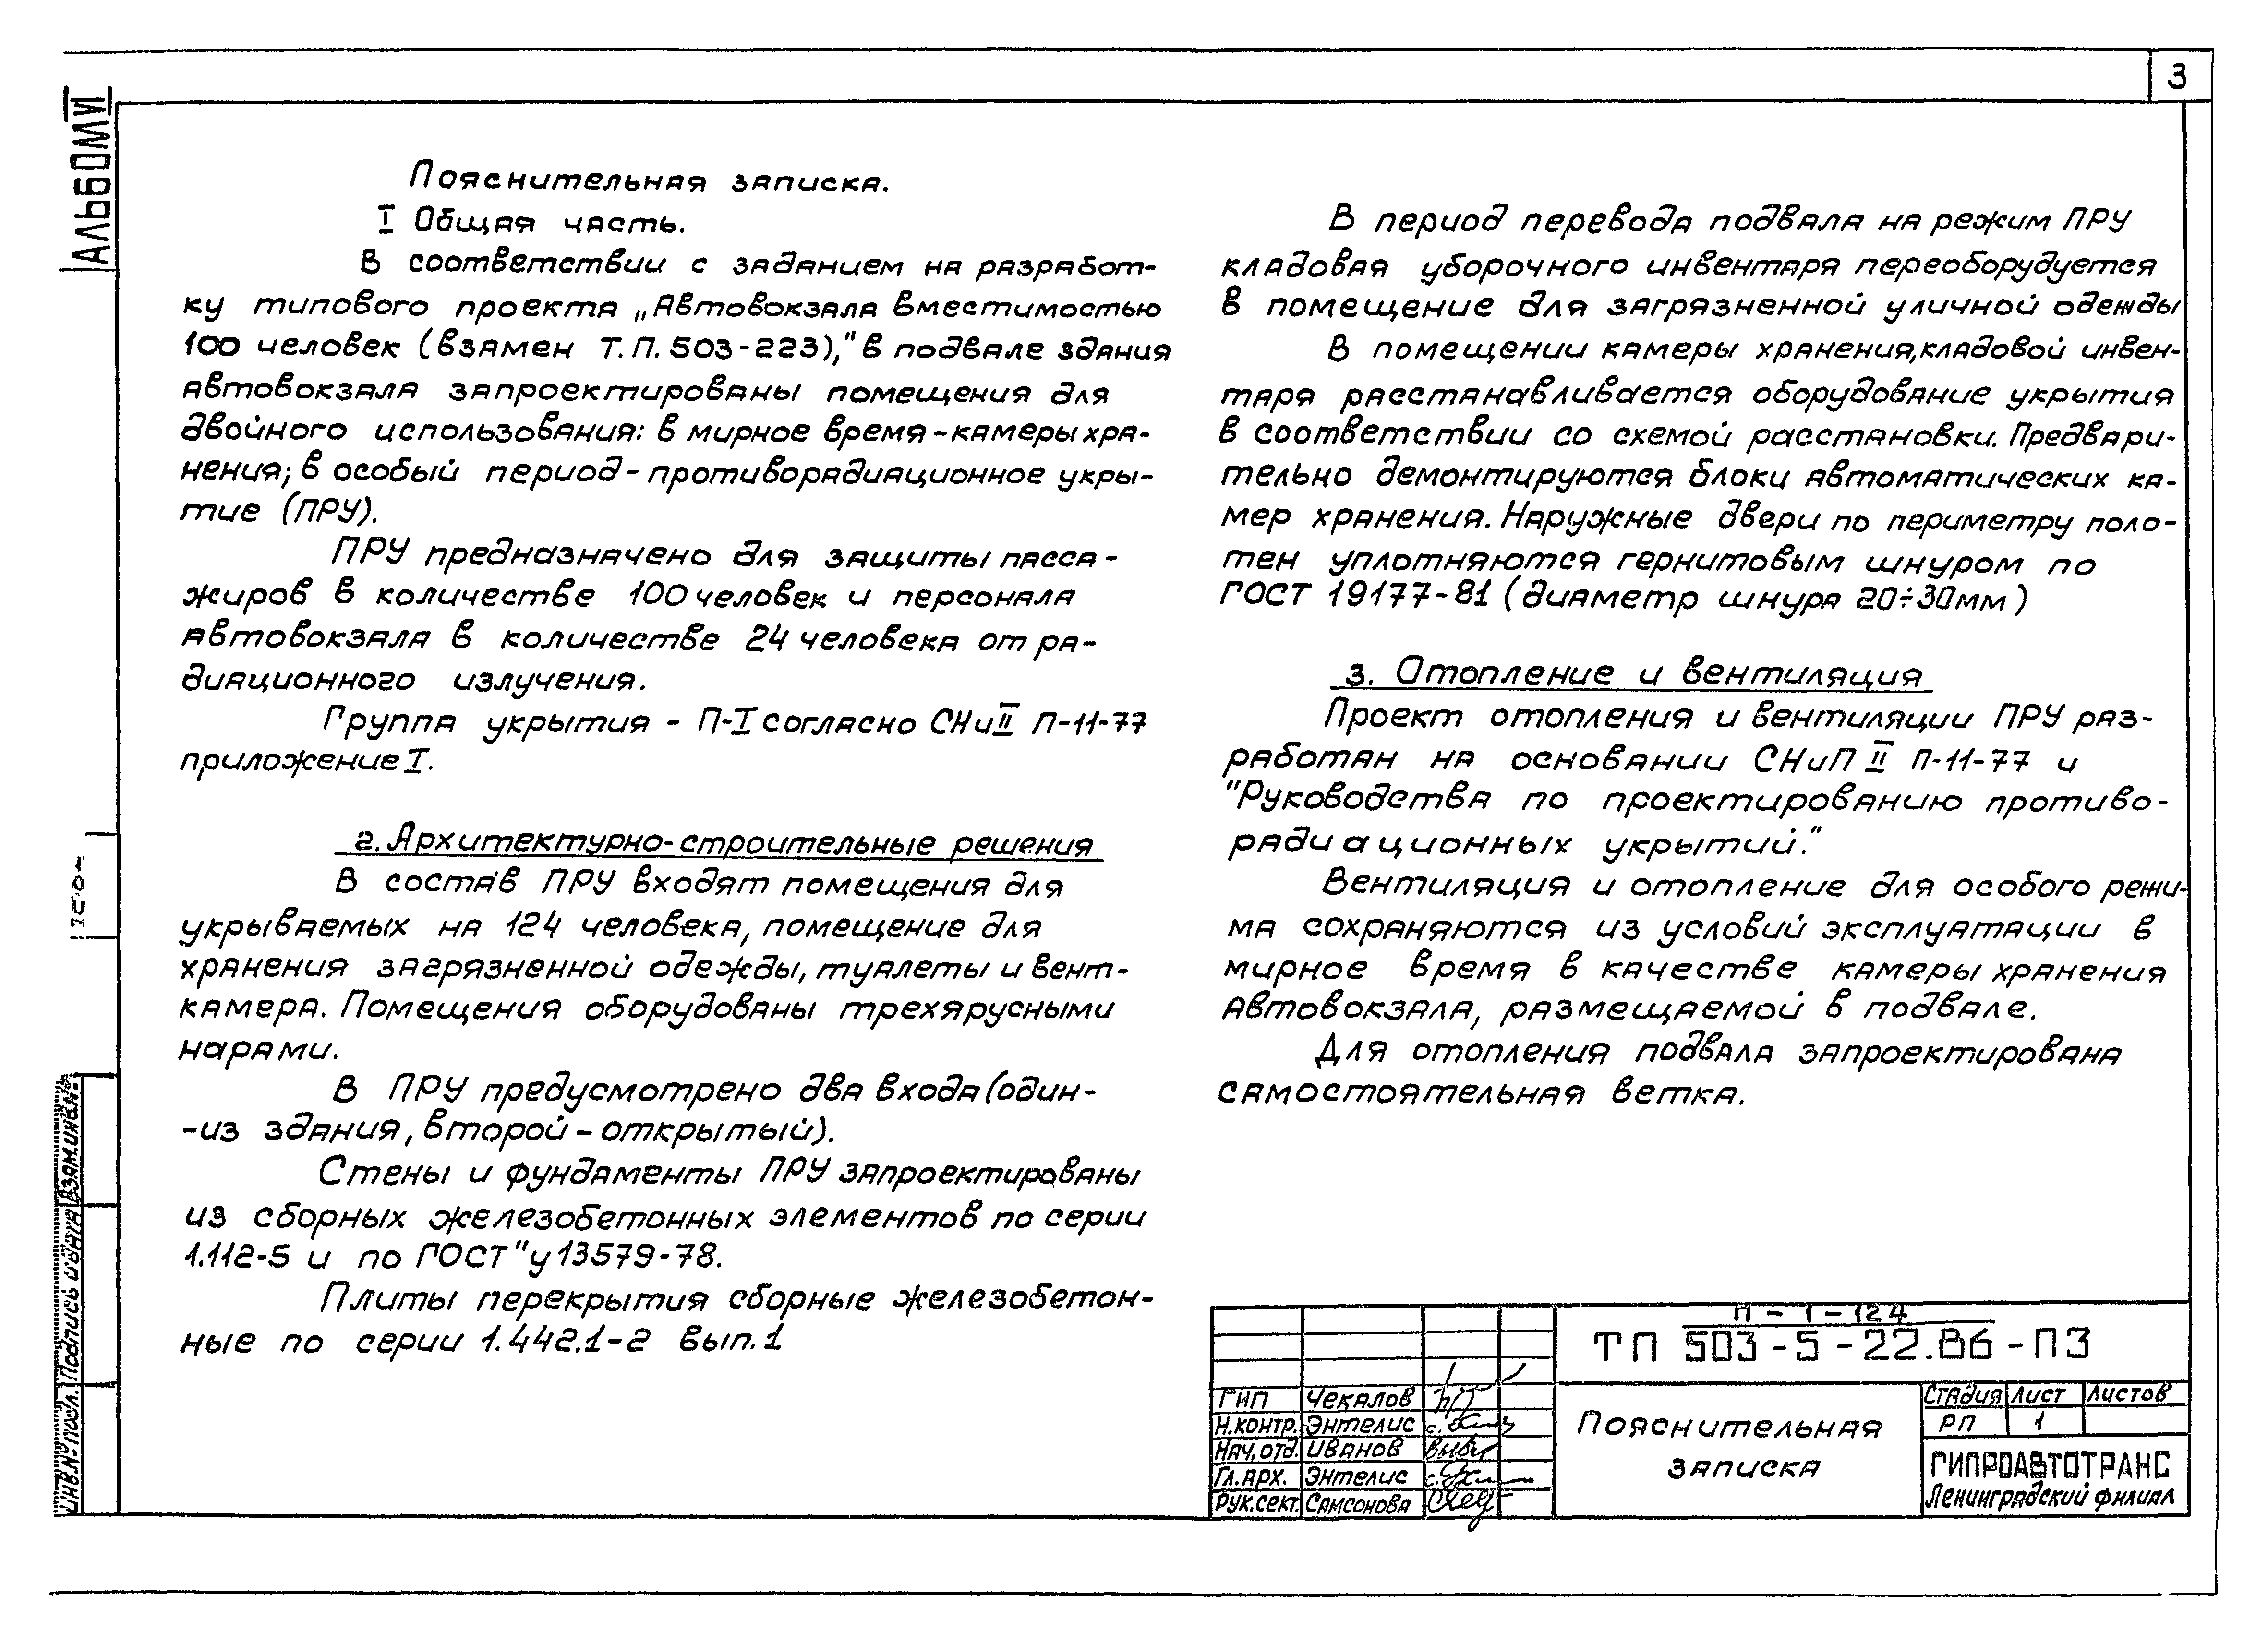 3
Альбом VI
Пояснительная записка.
I Общая часть.
В соответствии с заданием на разработ-
ку типового проекта „Автовокзала вместимостью
100 человек (взамен Т.П. 503-223)," в подвале здания
автовокзала запроектированы помещения для
двойного использования: в мирное время - камеры хра-
нения; в особый период - противорадиационное укры-
тие (ПРУ).
ПРУ предназначено для защиты пасса-
жиров в количестве 100 человек и персонала
автовокзала в количестве 24 человека от ра-
диационного излучения.
Группа укрытия - П-I согласно СНиII П-11-77
приложение I.
2. Архитектурно-строительные решения
В состав ПРУ входят помещения для
укрываемых на 124 человека, помещение для
хранения загрязненной одежды, туалеты и вент-
камера. Помещения оборудованы трехярусными
нарами.
В ПРУ предусмотрено два входа (один-
-из здания, второй - открытый).
Стены и фундаменты ПРУ запроектированы
из сборных железобетонных элементов по серии
1.112-5 и по ГОСТ"у 13579-78.
Плиты перекрытия сборные железобетон-
ные по серии 1.442.1-2 вып. 1
В период перевода подвала на режим ПРУ
кладовая уборочного инвентаря переоборудуется
в помещение для загрязненной уличной одежды
В помещении камеры хранения, кладовой инвен-
таря расстанавливается оборудование укрытия
в соответствии со схемой расстановки. Предвари-
тельно демонтируются блоки автоматических ка-
мер хранения. Наружные двери по периметру поло-
тен уплотняются гернитовым шнуром по
ГОСТ 19177-81 (диаметр шнура 20÷30мм)
3. Отопление и вентиляция
Проект отопления и вентиляции ПРУ раз-
работан на основании СНиП II П-11-77 и
"Руководства по проектированию противо-
радиационных укрытий."
Вентиляция и отопление для особого режи-
ма сохраняются из условий эксплуатации в
мирное время в качестве камеры хранения
автовокзала, размещаемой в подвале.
Для отопления подвала запроектирована
самостоятельная ветка.
П - 1 - 124
ТП 503-5-22.86-ПЗ
ГИП Чекалов
Н.контр. Энтелис
Нач.отд. Иванов
Гл.арх. Энтелис
Рук.сект. Самсонова
Пояснительная
записка
Стадия Лист Листов
РП 1
ГИПРОАВТОТРАНС
Ленинградский филиал
Инв.№ подл. Подпись и дата Взам.инв.№